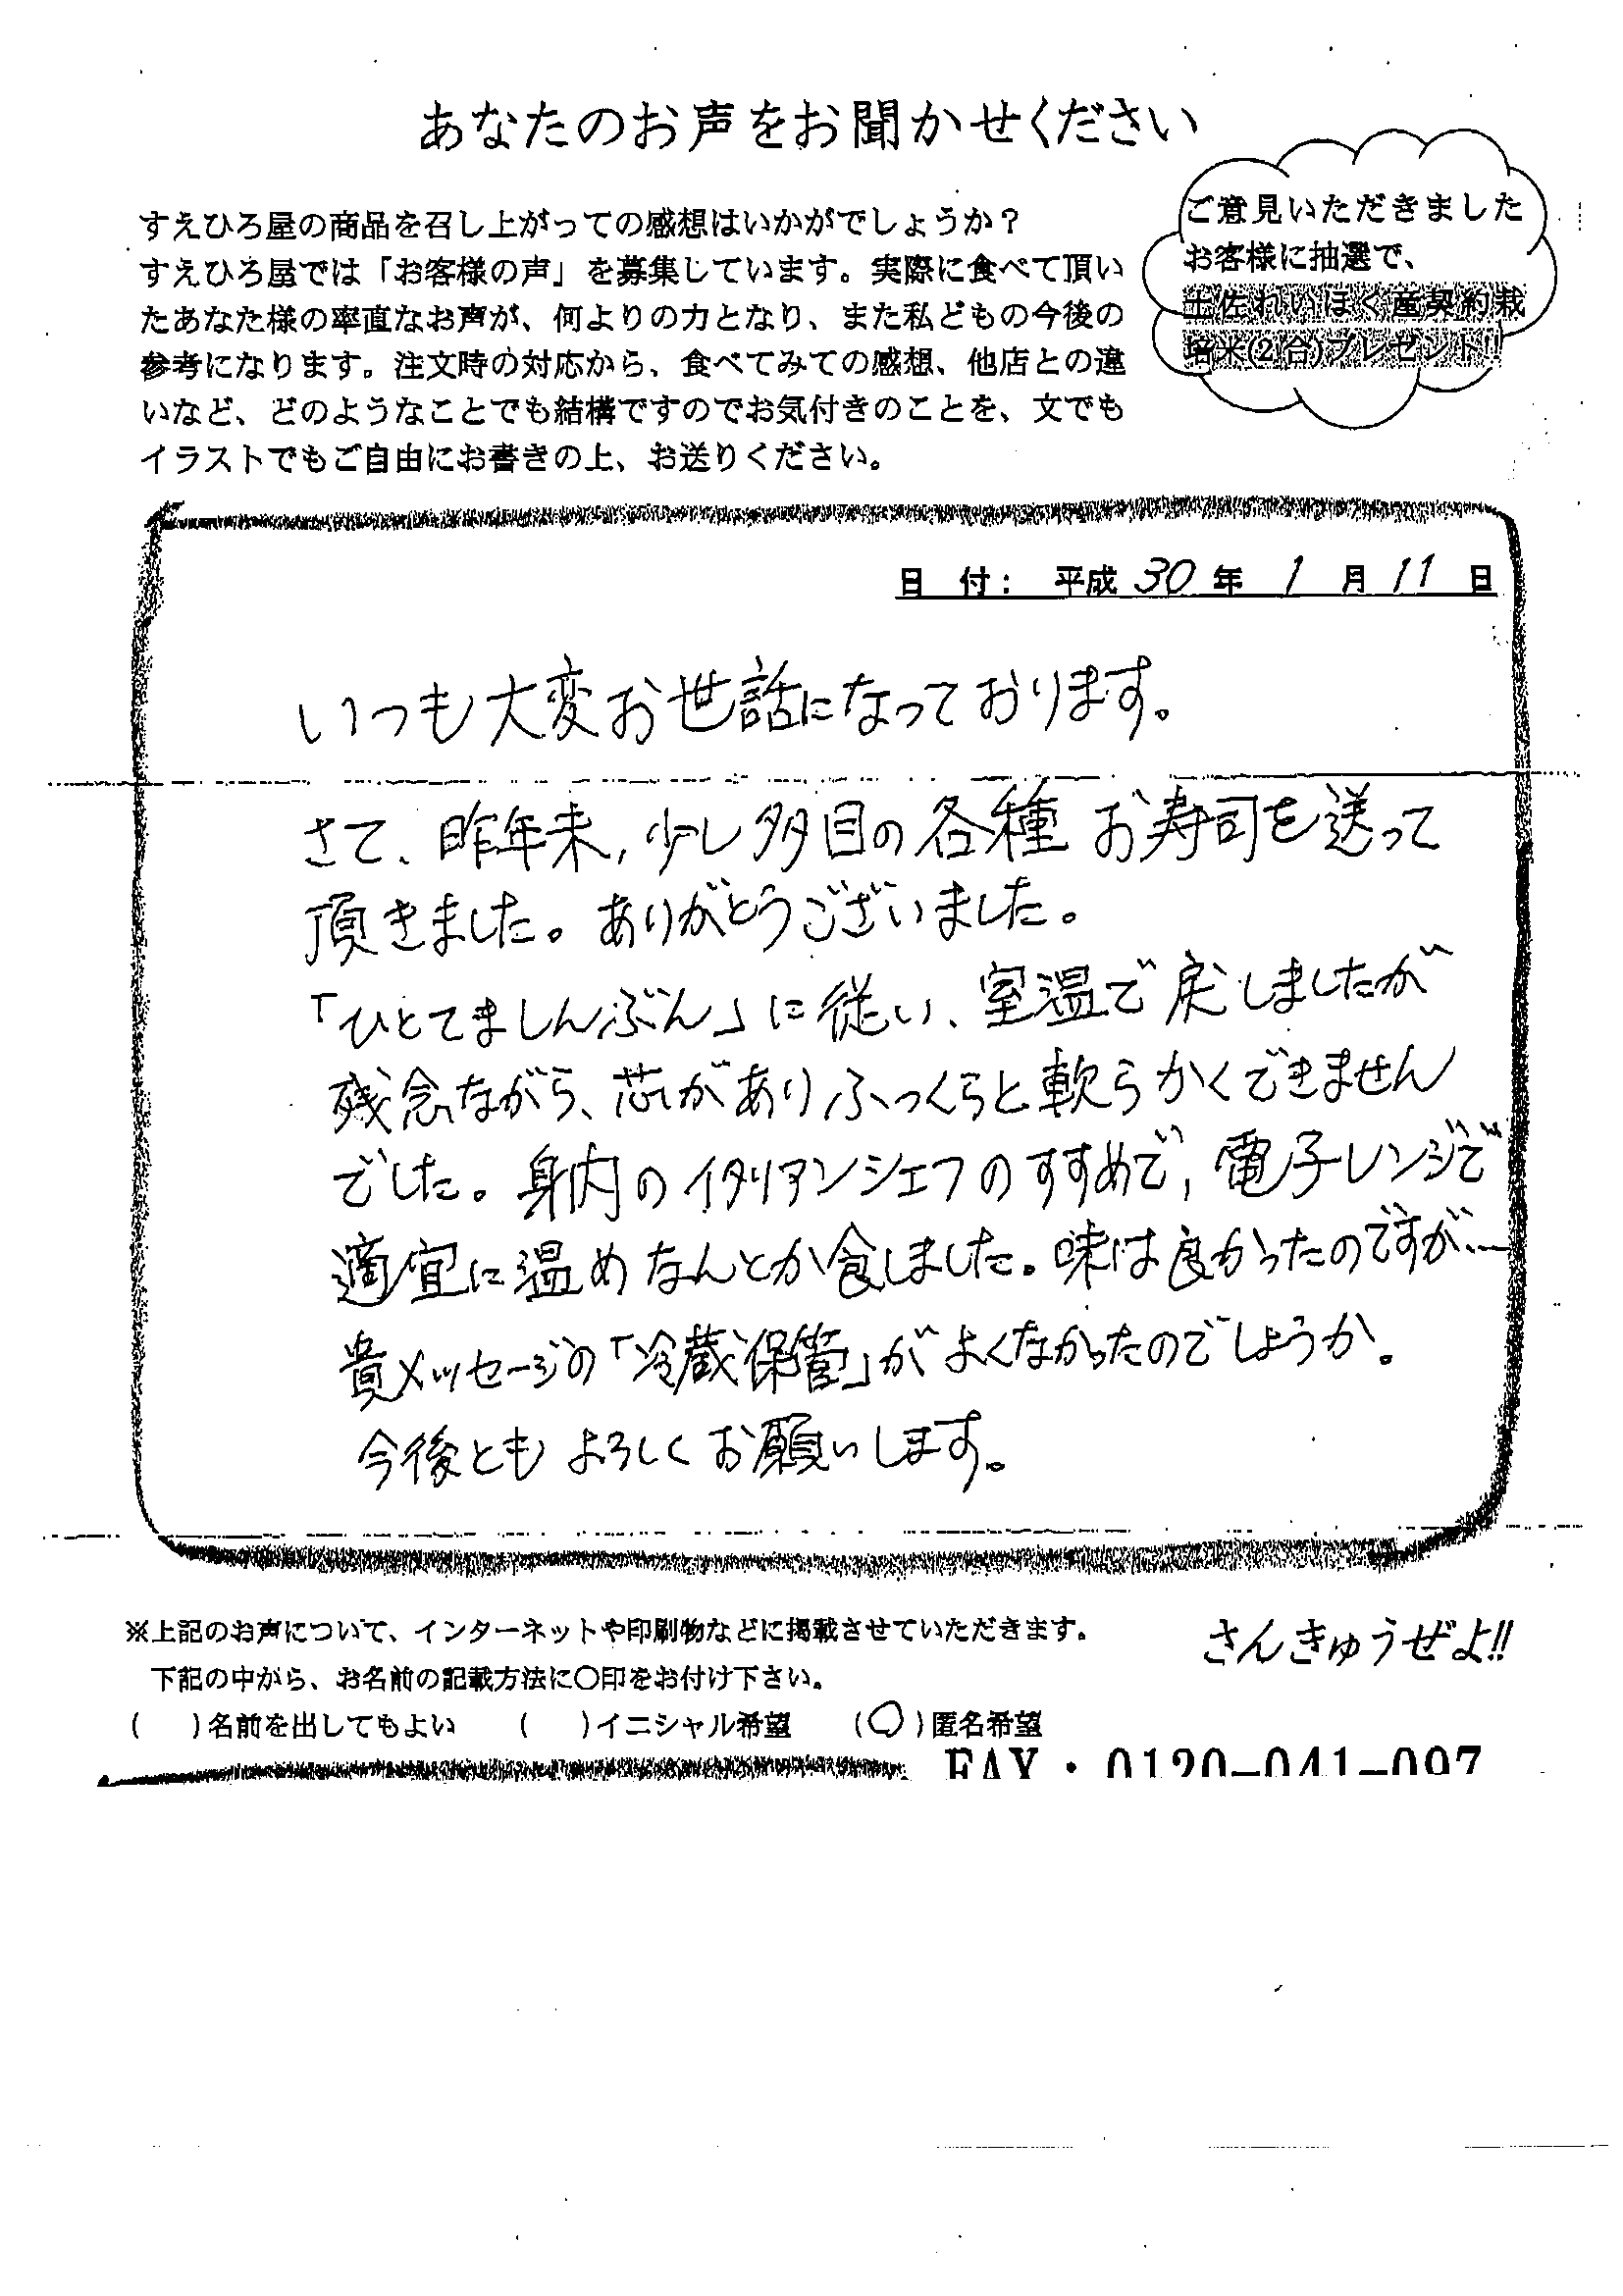 あなたのお声をお聞かせください
ご意見いただきました
お客様に抽選で、
土佐れいほく産契約栽
培米(2合)プレゼント!!
すえひろ屋の商品を召し上がっての感想はいかがでしょうか？
すえひろ屋では「お客様の声」を募集しています。実際に食べて頂い
たあなた様の率直なお声が、何よりの力となり、また私どもの今後の
参考になります。注文時の対応から、食べてみての感想、他店との違
いなど、どのようなことでも結構ですのでお気付きのことを、文でも
イラストでもご自由にお書きの上、お送りください。
日 付： 平成 30 年 1 月 11 日
いつも大変お世話になっております。
さて、昨年末,少し多目の各種お寿司を送って
頂きました。ありがとうございました。
「ひとてましんぶん」に従い、室温で戻しましたが
残念ながら、芯がありふっくらと軟らかくできません
でした。身内のイタリアンシェフのすすめで,電子レンジで
適宜に温めなんとか食しました。味は良かったのですが…
貴メッセージの「冷蔵保管」がよくなかったのでしょうか。
今後ともよろしくお願いします。
※上記のお声について、インターネットや印刷物などに掲載させていただきます。
下記の中から、お名前の記載方法に〇印をお付け下さい。
さんきゅうぜよ!!
( )名前を出してもよい ( )イニシャル希望 (〇)匿名希望
FAX・0120-041-097